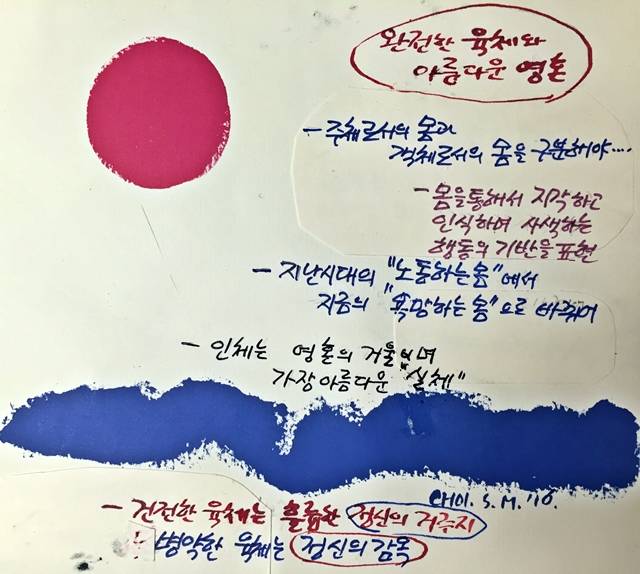 완전한 육체와
아름다운 영혼
- 주체로서의 몸과
객체로서의 몸을 구분해야....
- 몸을통해서 지각하고
인식하며 사색하는
행동의 기반을 표현
- 지난시대의 "노동하는몸"에서
지금의 "욕망하는몸"으로 바뀌어
- 인체는 영혼의 거울이며
가장아름다운 "실체"
CHOI. S. M. '10.
- 건전한 육체는 훌륭한 정신의 거주지
병약한 육체는 정신의 감옥